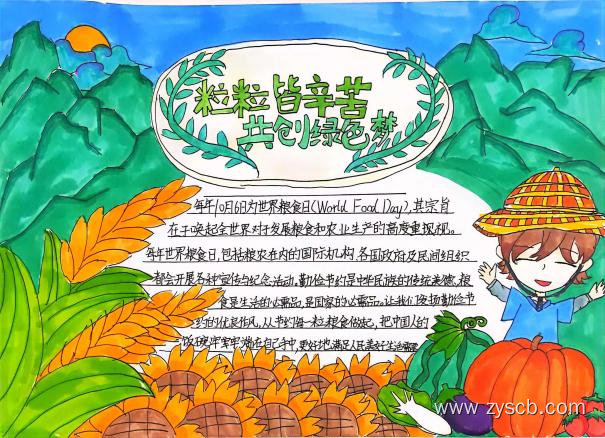 粒粒皆辛苦
共创绿色梦
每年10月16日为世界粮食日(World Food Day),其宗旨
在于唤起全世界对于发展粮食和农业生产的高度重视。
每年世界粮食日,包括粮农在内的国际机构,各国政府及民间组织
都会开展各种宣传与纪念活动,勤俭节约是中华民族的传统美德,粮
食是生活的必需品,是国家的必需品。让我们发扬勤俭节
约的优良作风,从节约每一粒粮食做起,把中国人的
饭碗牢牢端在自己手中,更好地满足人民美好生活需要
www.zyscb.com